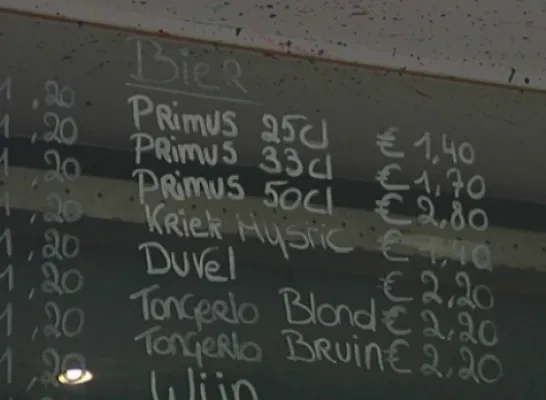 1,20
1,20
1,20
1,20
1,20
1,20
1,20
1,20
Bier
Primus 25cl € 1,40
Primus 33cl € 1,70
Primus 50cl € 2,80
Kriek Mystic € 1,10
Duvel € 2,20
Tongerlo Blond € 2,20
Tongerlo Bruin € 2,20
Wijn